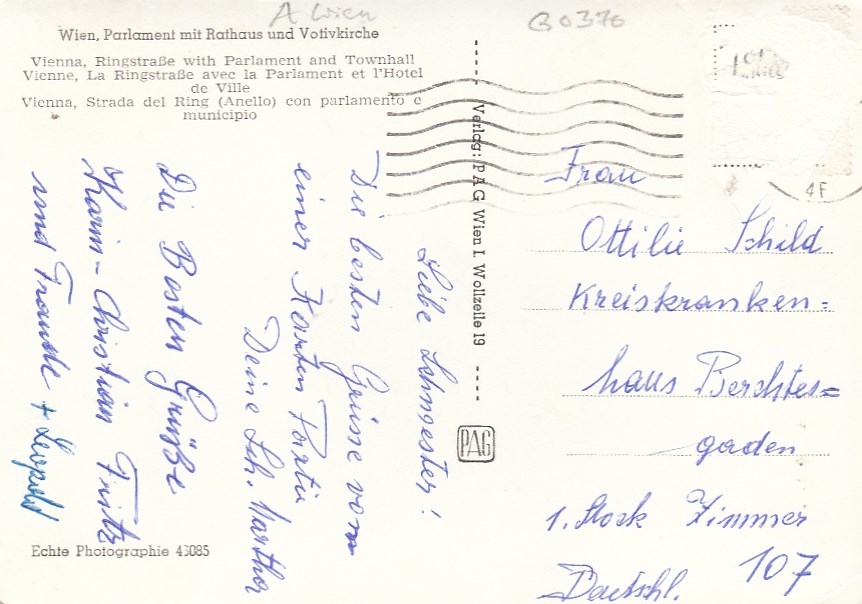 A Wien
B0376
Wien, Parlament mit Rathaus und Votivkirche
Vienna, Ringstraße with Parlament and Townhall
Vienne, La Ringstraße avec la Parlament et l'Hotel
de Ville
Vienna, Strada del Ring (Anello) con parlamento e
municipio
Liebe Schwester!
Die besten Grüsse von
einer Karten Partie
Deine Sch. Martha
Die Besten Grüße
Karin-Christian Fritz
und Traude + Leopold
Echte Photographie 43085
Verlag: PAG Wien I. Wollzeile 19
PAG
4F
Frau
Ottilie Schild
Kreiskranken=
haus Berchtes=
gaden
1. Stock Zimmer
107
Deutschl.